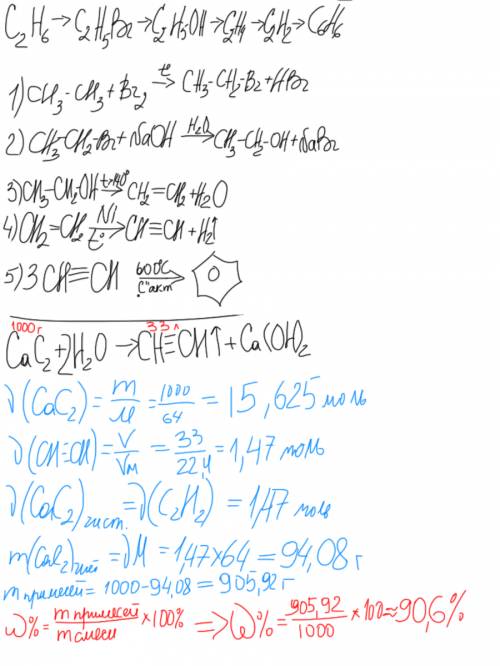 C2H6 → C2H5Br → C2H5OH → C2H4 → C2H2 → C6H6
1) CH3-CH3 + Br2 →t° CH3-CH2-Br + HBr
2) CH3-CH2-Br + NaOH →H2O CH3-CH2-OH + NaBr
3) CH3-CH2OH →t>140° CH2=CH2 + H2O
4) CH2=CH2 →Ni t° CH≡CH + H2↑
5) 3CH≡CH →600°C C"акт"
1000 г 33 л
CaC2 + 2H2O → CH≡CH↑ + Ca(OH)2
ν(CaC2) = m/M = 1000/64 = 15,625 моль
ν(CH≡CH) = V/Vм = 33/22,4 = 1,47 моль
ν(CaC2)чист. = ν(C2H2) = 1,47 моль
m(CaC2) = νM = 1,47×64 = 94,08 г
m примесей = 1000-94,08 = 905,92 г
ω% = m примесей/m смеси ×100% => ω% = 905,92/1000 ×100 ≈ 90,6%